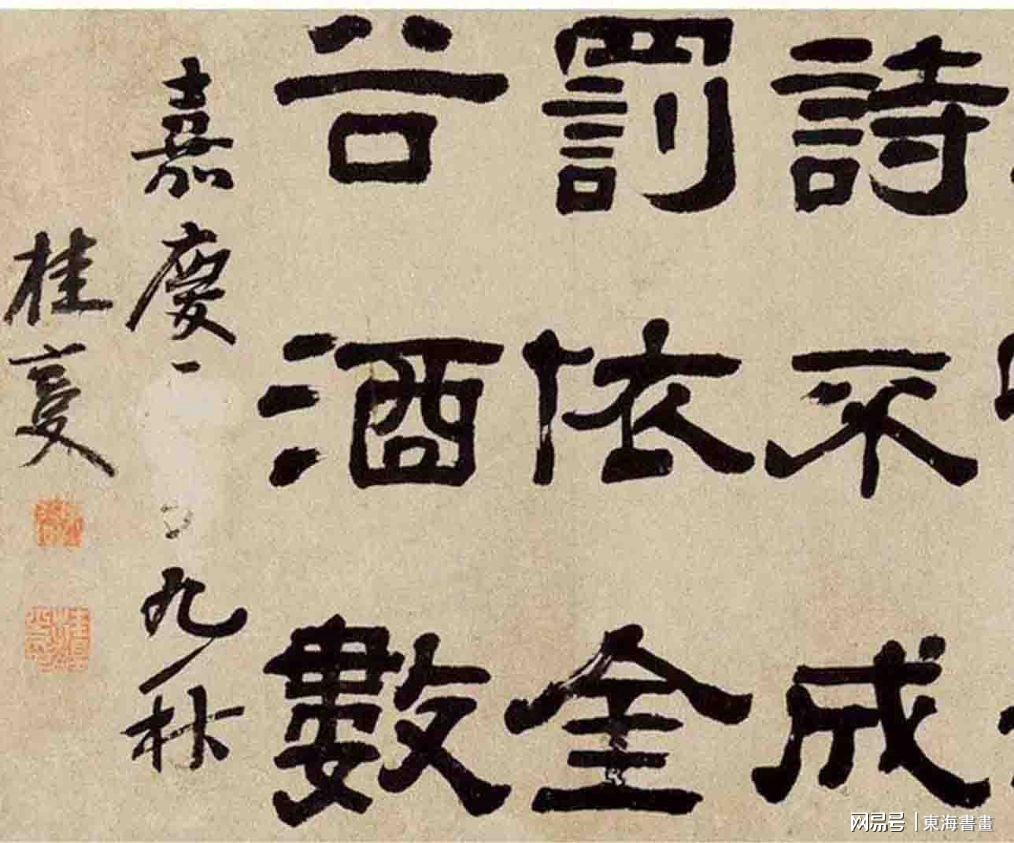 詩不成
罰依金
谷酒數
嘉慶
九秋
桂馥
网易号 | 東海書畫